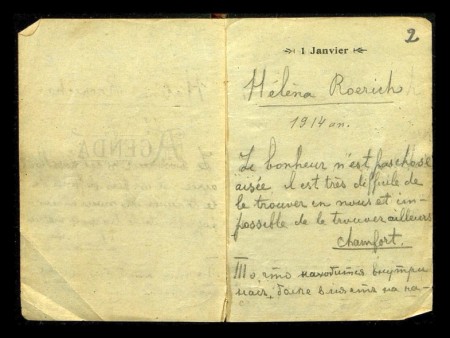 2
1 Janvier
Héléna Roerich
1914 an.
Le bonheur n'est pas chose
aisée il est très difficile de
le trouver en nous et im-
possible de le trouver ailleurs
Chamfort.
То, что находится внутри
нас, более влияет на на-
AGENDA